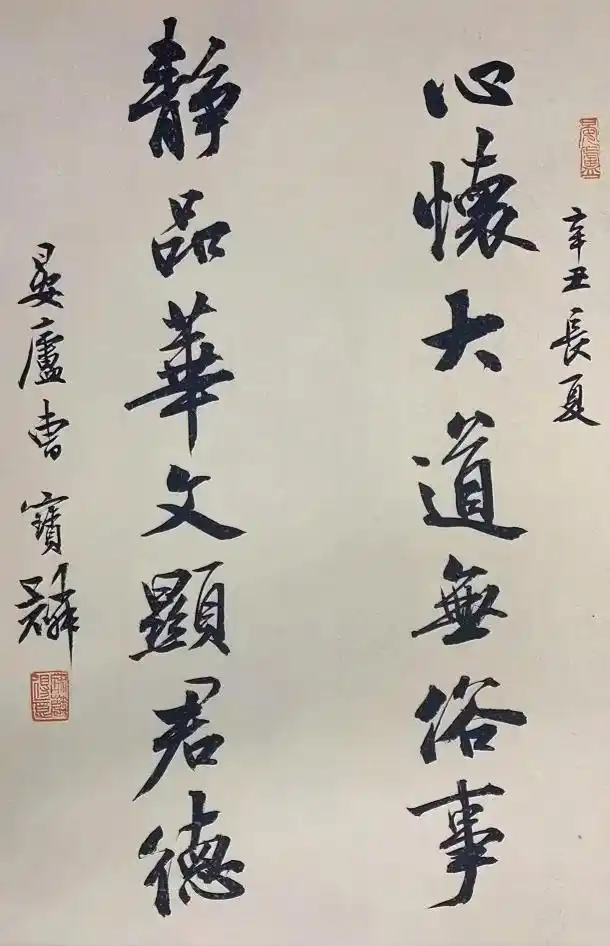 辛丑長夏
心懷大道無俗事
靜品華文顯君德
晏廬曹寶麟
晏廬